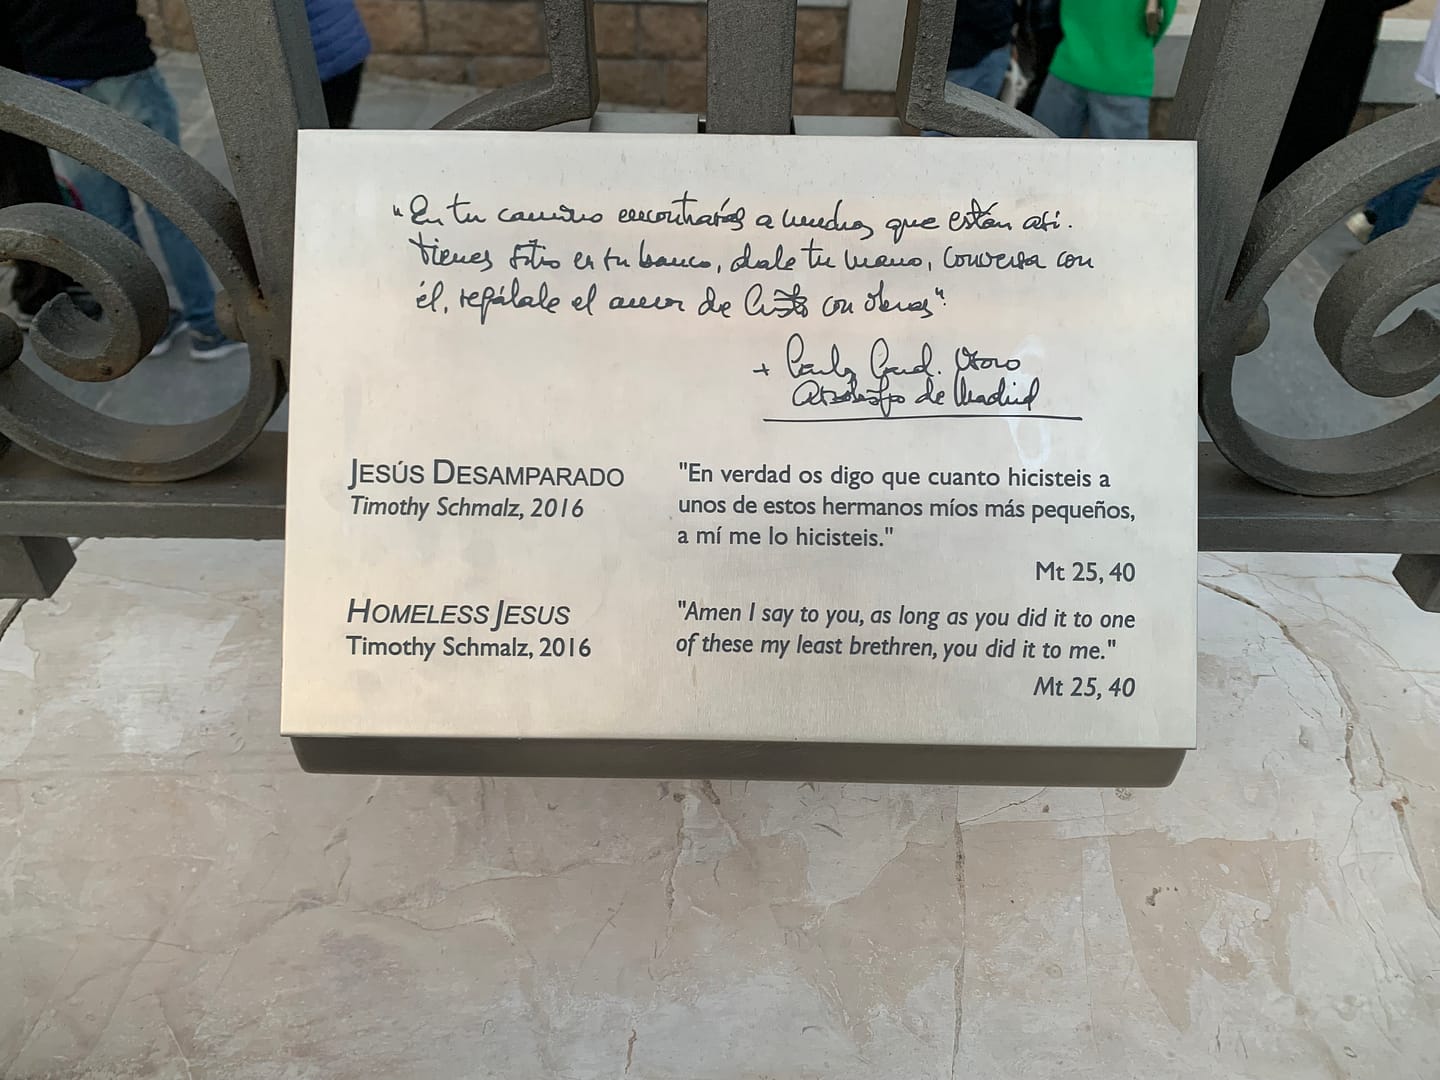 "En tu camino encontrarás a muchos que están así.
tienes sitio en tu banco, dale tu mano, conversa con
él, regálale el amor de Cristo con obras".
+ Carlos Card. Osoro
Arzobispo de Madrid
JESÚS DESAMPARADO
Timothy Schmalz, 2016
"En verdad os digo que cuanto hicisteis a
unos de estos hermanos míos más pequeños,
a mí me lo hicisteis."
Mt 25, 40
HOMELESS JESUS
Timothy Schmalz, 2016
"Amen I say to you, as long as you did it to one
of these my least brethren, you did it to me."
Mt 25, 40